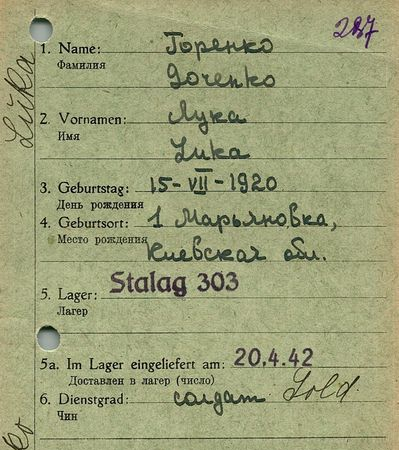 287
1. Name: Горенко
Фамилия
Доченко
2. Vornamen: Лука
Имя
Luka
3. Geburtstag: 15-VII-1920
День рождения
4. Geburtsort: 1 Марьяновка,
Место рождения Киевская обл.
5. Lager: Stalag 303
Лагерь
5a. Im Lager eingeliefert am: 20.4.42
Доставлен в лагерь (число)
6. Dienstgrad: солдат Sold.
Чин